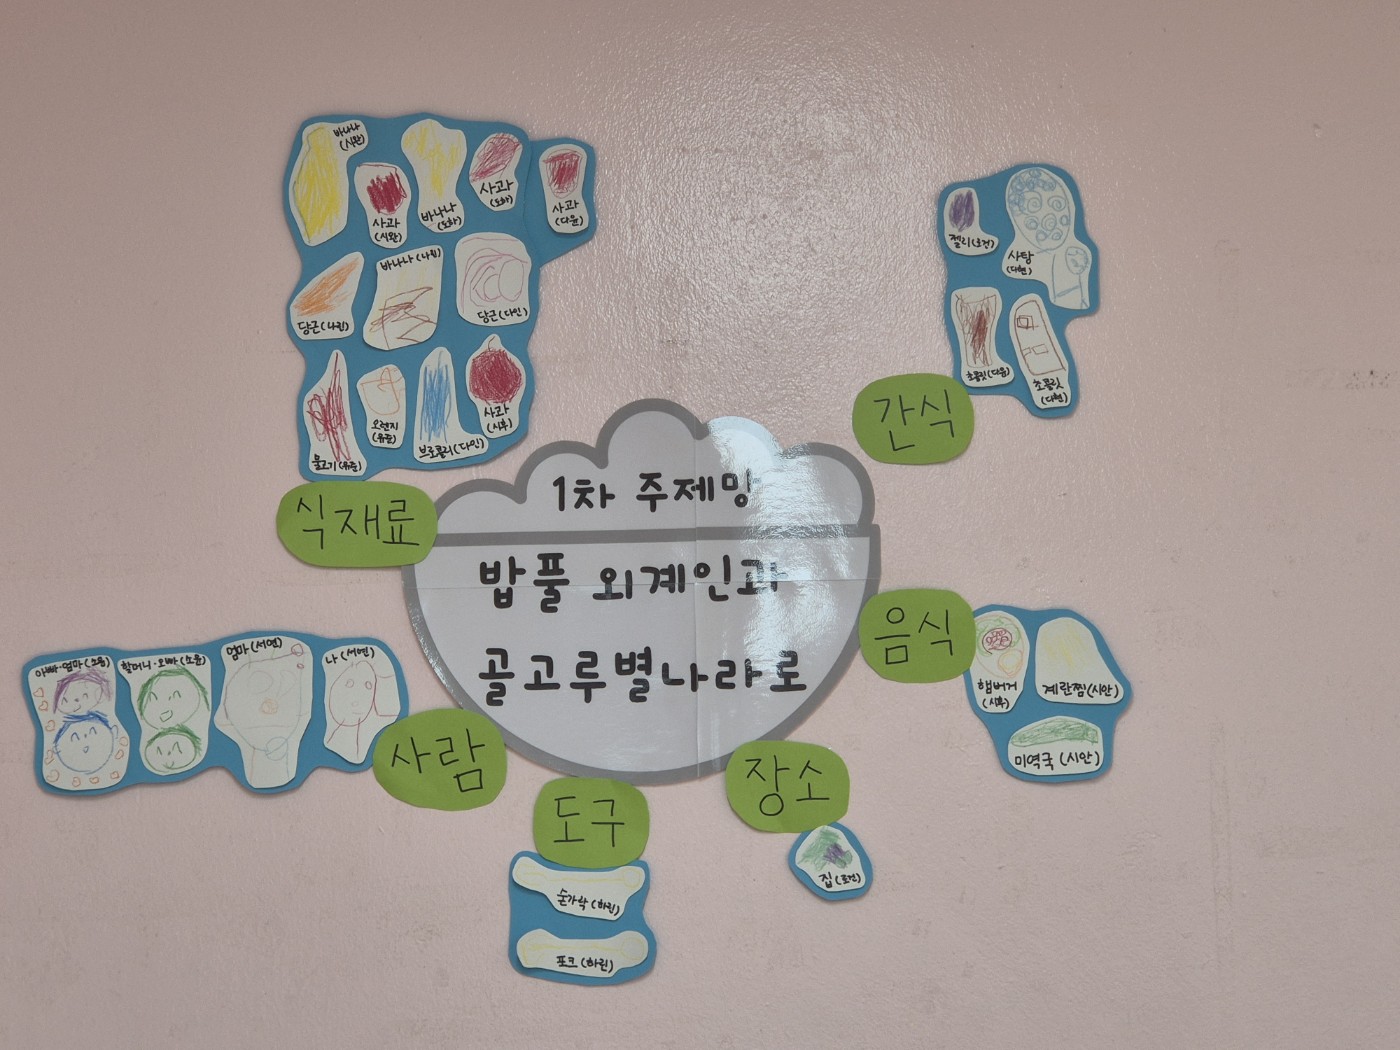 1차 주제망
밥풀 외계인과
골고루별나라로
식재료
바나나
(시완)
사과
(시완)
바나나
(도하)
사과
(도하)
사과
(다윤)
당근(나린)
바나나(나린)
당근(다인)
물고기(유준)
오렌지
(유준)
브로콜리(다인)
사과
(시후)
간식
젤리(로건)
사탕
(다현)
초콜릿(다윤)
초콜릿
(다현)
음식
햄버거
(시후)
계란찜(시안)
미역국(시안)
장소
집(로건)
도구
숟가락(하린)
포크(하린)
사람
아빠·엄마(소윤)
할머니·오빠(소윤)
엄마(서연)
나(서연)